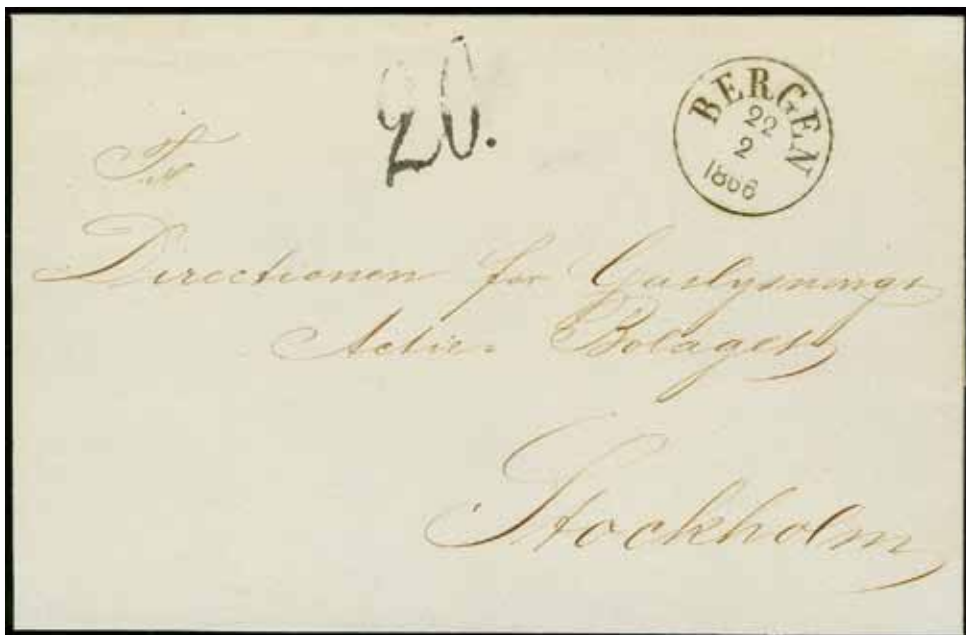 20.
BERGEN
22
2
1866
Til
Directionen for Gaslysnings
Actie- Bolaget
Stockholm